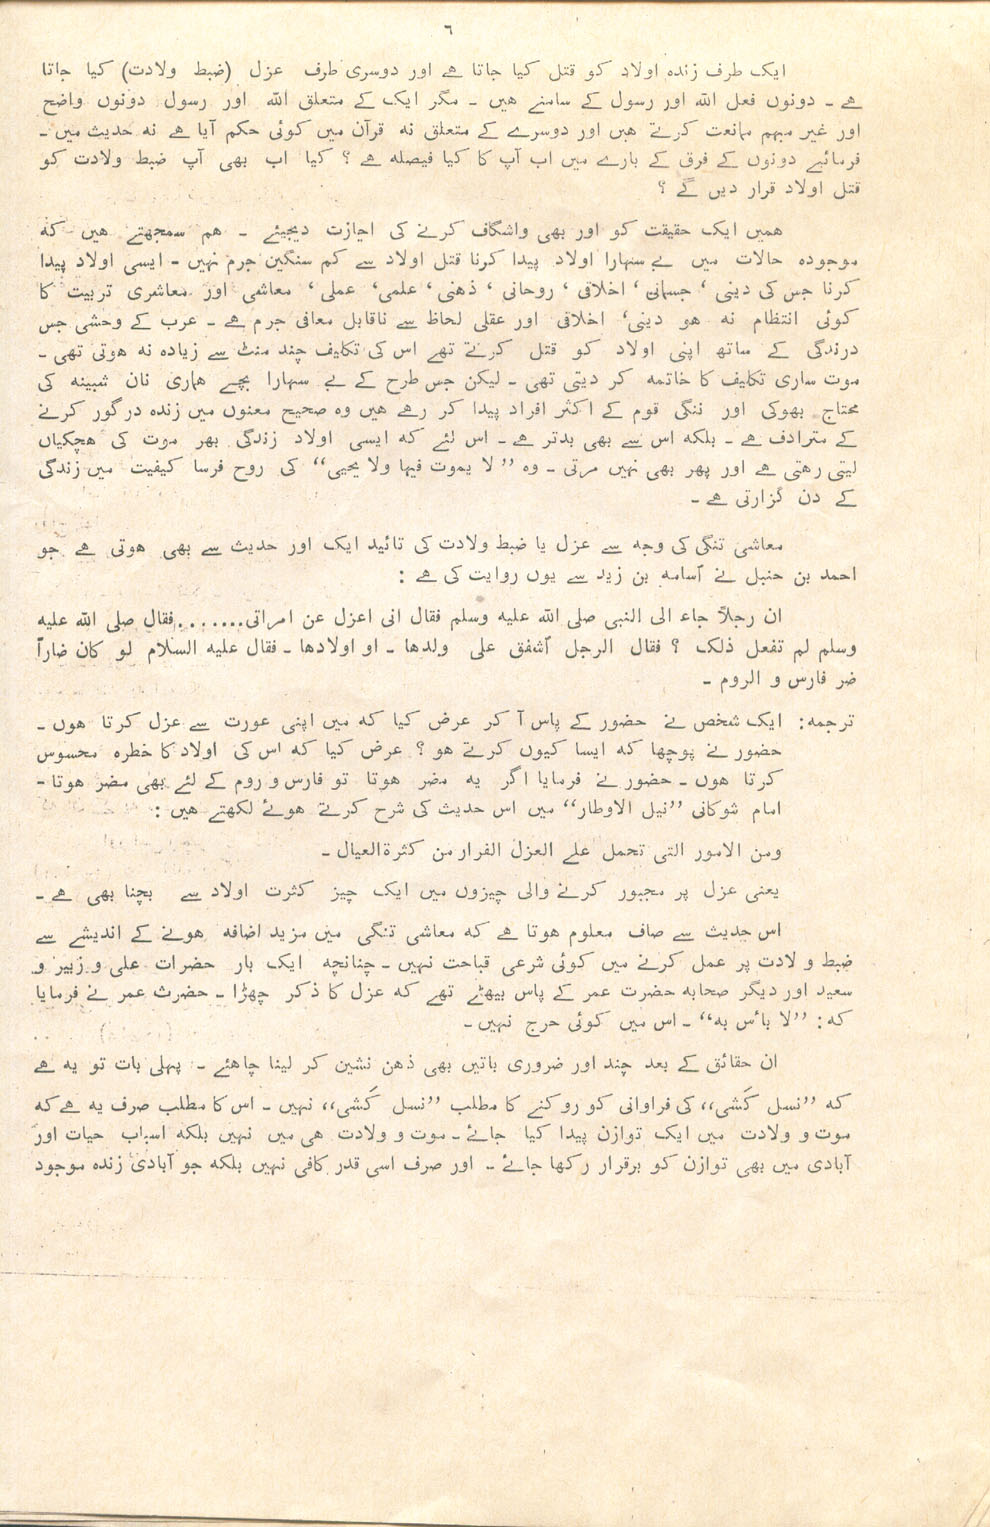 ٦
ایک طرف زندہ اولاد کو قتل کیا جاتا ہے اور دوسری طرف عزل (ضبط ولادت) کیا جاتا
ہے ۔ دونوں فعل اللہ اور رسول کے سامنے ہیں ۔ مگر ایک کے متعلق اللہ اور رسول دونوں واضح
اور غیر مبہم ممانعت کرتے ہیں اور دوسرے کے متعلق نہ قرآن میں کوئی حکم آیا ہے نہ حدیث میں ۔
فرمائیے دونوں کے فرق کے بارے میں اب آپ کا کیا فیصلہ ہے ؟ کیا اب بھی آپ ضبط ولادت کو
قتل اولاد قرار دیں گے ؟
ہمیں ایک حقیقت کو اور بھی واشگاف کرنے کی اجازت دیجیئے ۔ ہم سمجھتے ہیں کہ
موجودہ حالات میں بے سہارا اولاد پیدا کرنا قتل اولاد سے کم سنگین جرم نہیں ۔ ایسی اولاد پیدا
کرنا جس کی دینی ‘ جسمانی ‘ اخلاقی ‘ روحانی ‘ ذہنی ‘ علمی‘ عملی ‘ معاشی اور معاشری تربیت کا
کوئی انتظام نہ ہو دینی‘ اخلاقی اور عقلی لحاظ سے ناقابل معافی جرم ہے ۔ عرب کے وحشی جس
درندگی کے ساتھ اپنی اولاد کو قتل کرتے تھے اس کی تکالیف چند منٹ سے زیادہ نہ ہوتی تھی ۔
موت ساری تکالیف کا خاتمہ کر دیتی تھی ۔ لیکن جس طرح کے بے سہارا بچے ہماری نان شبینہ کی
محتاج بھوکی اور ننگی قوم کے اکثر افراد پیدا کر رہے ہیں وہ صحیح معنوں میں زندہ درگور کرنے
کے مترادف ہے ۔ بلکہ اس سے بھی بدتر ہے ۔ اس لئے کہ ایسی اولاد زندگی بھر موت کی ہچکیاں
لیتی رہتی ہے اور پھر بھی نہیں مرتی ۔ وہ ”لا یموت فیہا ولا یحیی“ کی روح فرسا کیفیت میں زندگی
کے دن گزارتی ہے ۔
معاشی تنگی کی وجہ سے عزل یا ضبط ولادت کی تائید ایک اور حدیث سے بھی ہوتی ہے جو
احمد بن حنبل نے اسامہ بن زید سے یوں روایت کی ہے :
ان رجلاً جاء الی النبی صلی اللہ علیہ وسلم فقال انی اعزل عن امراتی.......فقال صلی اللہ علیہ
وسلم لم تفعل ذلک ؟ فقال الرجل اشفق علی ولدها ۔ او اولادها ۔ فقال علیہ السلام لو کان ضاراً
ضر فارس و الروم ۔
ترجمہ: ایک شخص نے حضور کے پاس آ کر عرض کیا کہ میں اپنی عورت سے عزل کرتا ہوں ۔
حضور نے پوچھا کہ ایسا کیوں کرتے ہو ؟ عرض کیا کہ اس کی اولاد کا خطرہ محسوس
کرتا ہوں ۔ حضور نے فرمایا اگر یہ مضر ہوتا تو فارس و روم کے لئے بھی مضر ہوتا ۔
امام شوکانی ”نیل الاوطار“ میں اس حدیث کی شرح کرتے ہوئے لکھتے ہیں :
ومن الامور التی تحمل علے العزل الفرار من کثرۃ العیال ۔
یعنی عزل پر مجبور کرنے والی چیزوں میں ایک چیز کثرت اولاد سے بچنا بھی ہے ۔
اس حدیث سے صاف معلوم ہوتا ہے کہ معاشی تنگی میں مزید اضافہ ہونے کے اندیشے سے
ضبط و لادت پر عمل کرنے میں کوئی شرعی قباحت نہیں ۔ چنانچہ ایک بار حضرات علی و زبیر و
سعید اور دیگر صحابہ حضرت عمر کے پاس بیھٹے تھے کہ عزل کا ذکر چھڑا ۔ حضرت عمر نے فرمایا
کہ : ”لا باٴس بہ“ ۔ اس میں کوئی حرج نہیں ۔
ان حقائق کے بعد چند اور ضروری باتیں بھی ذہن نشین کر لینا چاہئے ۔ پہلی بات تو یہ ہے
کہ ”نسل کَشی“ کی فراوانی کو روکنے کا مطلب ”نسل کُشی“ نہیں ۔ اس کا مطلب صرف یہ ہے کہ
موت و ولادت میں ایک توازن پیدا کیا جائے ۔ موت و ولادت ہی میں نہیں بلکہ اسباب حیات اور
آبادی میں بھی توازن کو برقرار رکھا جائے ۔ اور صرف اسی قدر کافی نہیں بلکہ جو آبادی زندہ موجود